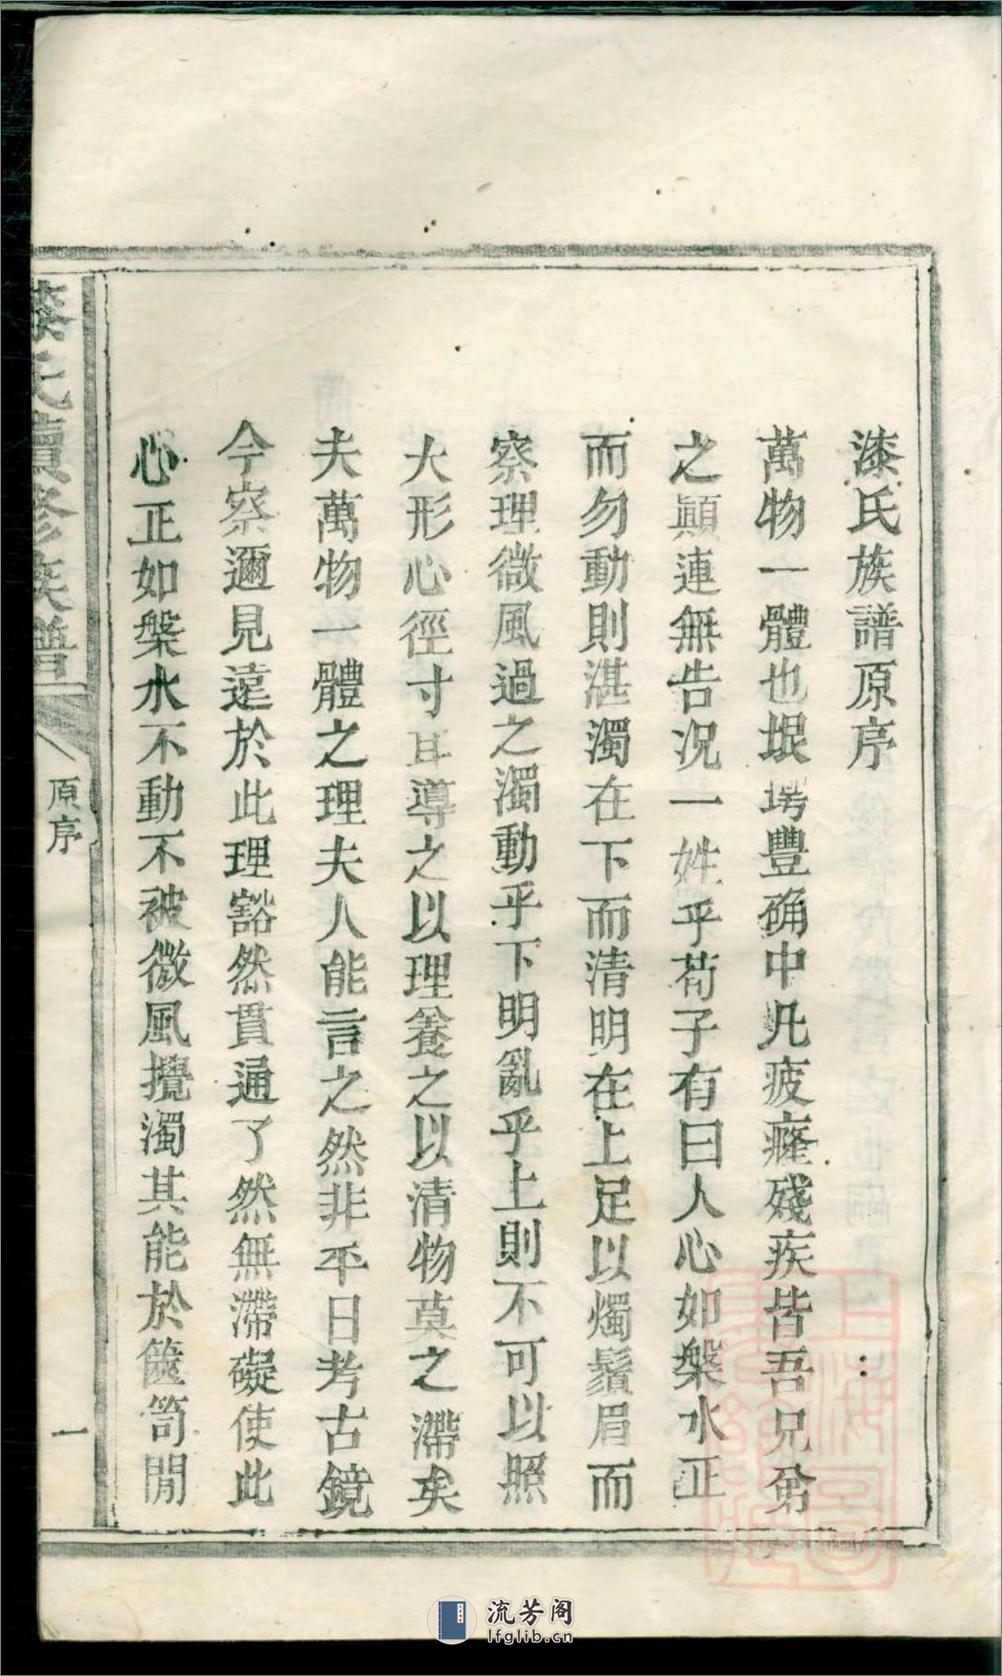 漆氏族譜原序
萬物一體也垠堮豐确中凡疲癃殘疾皆吾兄弟
之顚連無告況一姓乎荀子有曰人心如槃水正
而勿動則湛濁在下而清明在上足以燭鬚眉而
察理微風過之濁動乎下明亂乎上則不可以照
大形心徑寸耳導之以理養之以清物莫之滯矣
夫萬物一體之理夫人能言之然非平日考古鏡
今察邇見遠於此理豁然貫通了然無滯礙使此
心正如槃水不動不被微風攪濁其能於篋笥閒
漆氏續修族譜
原序
一
流芳阁
lfglib.cn